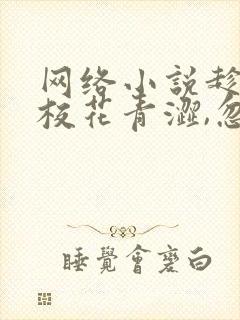 网络小説趁
校花青澀,忽
睡覺會變白